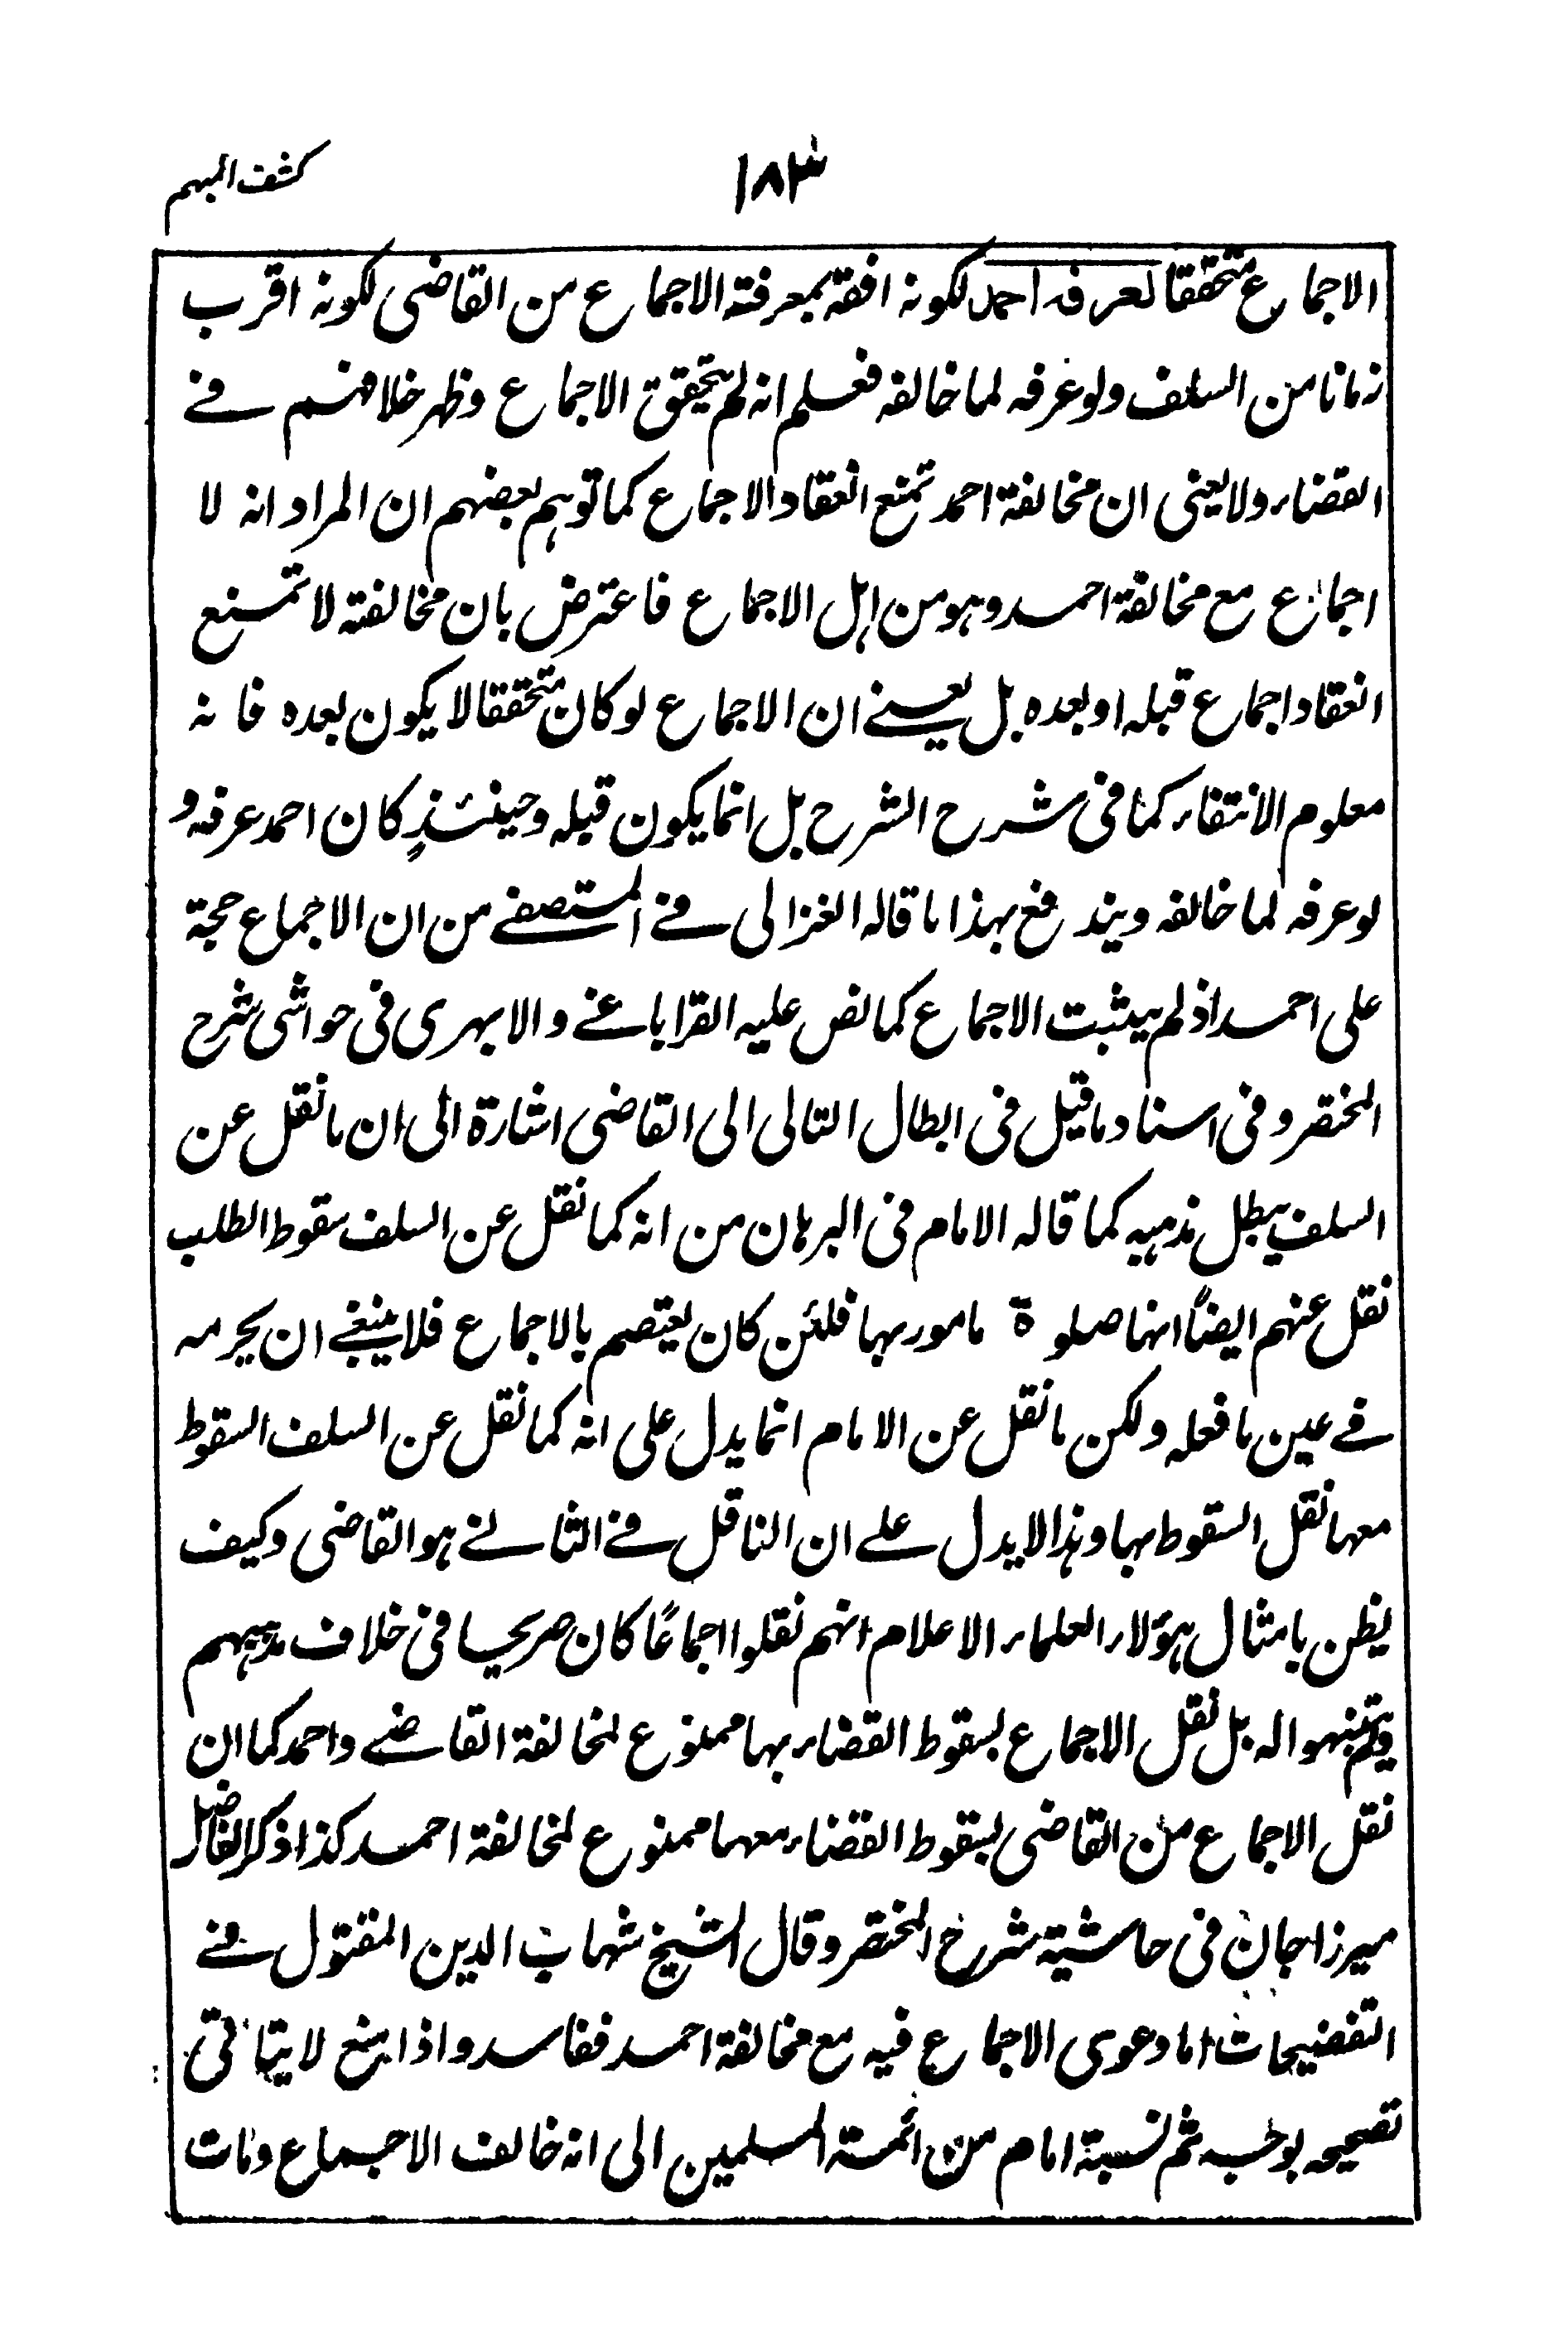 كشف المبهم
١٨٣
الاجماع متحققا لعرفه احمد لكونه افقه بمعرفته الاجماع من القاضى لكونه اقرب
زمانا من السلف ولو عرفه لما خالفه فعلم انه لم يتحقق الاجماع وظهر خلافهم في
القضاء ولا يعنى ان مخالفة احمد تمنع انعقاد الاجماع كما توهم بعضهم ان المراد انه لا
اجماع مع مخالفة احمد وهو من اهل الاجماع فاعترض بان مخالفته لا تمنع
انعقاد اجماع قبله او بعده بل يعنى ان الاجماع لو كان متحققا لا يكون بعده فانه
معلوم الانتفاء كما فى شرح الشرح بل انما يكون قبله وحينئذٍ كان احمد عرفه و
لو عرفه لما خالفه ويندفع بهذا ما قاله الغزالى فى المستصفى من ان الاجماع حجة
على احمد اذ لم يثبت الاجماع كما نص عليه القراباغى والابهرى فى حواشى شرح
المختصر وفى اسناد ما قيل فى ابطال التالى الى القاضى اشارة الى ان ما نقل عن
السلف يبطل مذهبه كما قاله الامام فى البرهان من انه كما نقل عن السلف سقوط الطلب
نقل عنهم ايضاً انها صلوة مامور بها فلئن كان يعتصم بالاجماع فلا ينبغى ان يحرمه
فى عين ما فعله ولكن ما نقل عن الامام انما يدل على انه كما نقل عن السلف السقوط
معها نقل السقوط بها وهذا لا يدل على ان الناقل فى الثانى هو القاضى وكيف
يظن بامثال هؤلاء العلماء الاعلام انهم نقلوا اجماعًا كان صريحا فى خلاف مذهبهم
ولم يتنبهوا له بل نقل الاجماع بسقوط القضاء بها ممنوع لمخالفة القاضى واحمد كما ان
نقل الاجماع من القاضى بسقوط القضاء معها ممنوع لمخالفة احمد كذا ذكر الفاضل
ميرزا جان فى حاشية شرح المختصر وقال الشيخ شهاب الدين المقتول فى
التفضيحات اما دعوى الاجماع فيه مع مخالفة احمد ففاسد واذا منع لا يتاتى
تصحيحه بوجه ثم نسبة امام من ائمة المسلمين الى انه خالف الاجماع ومات